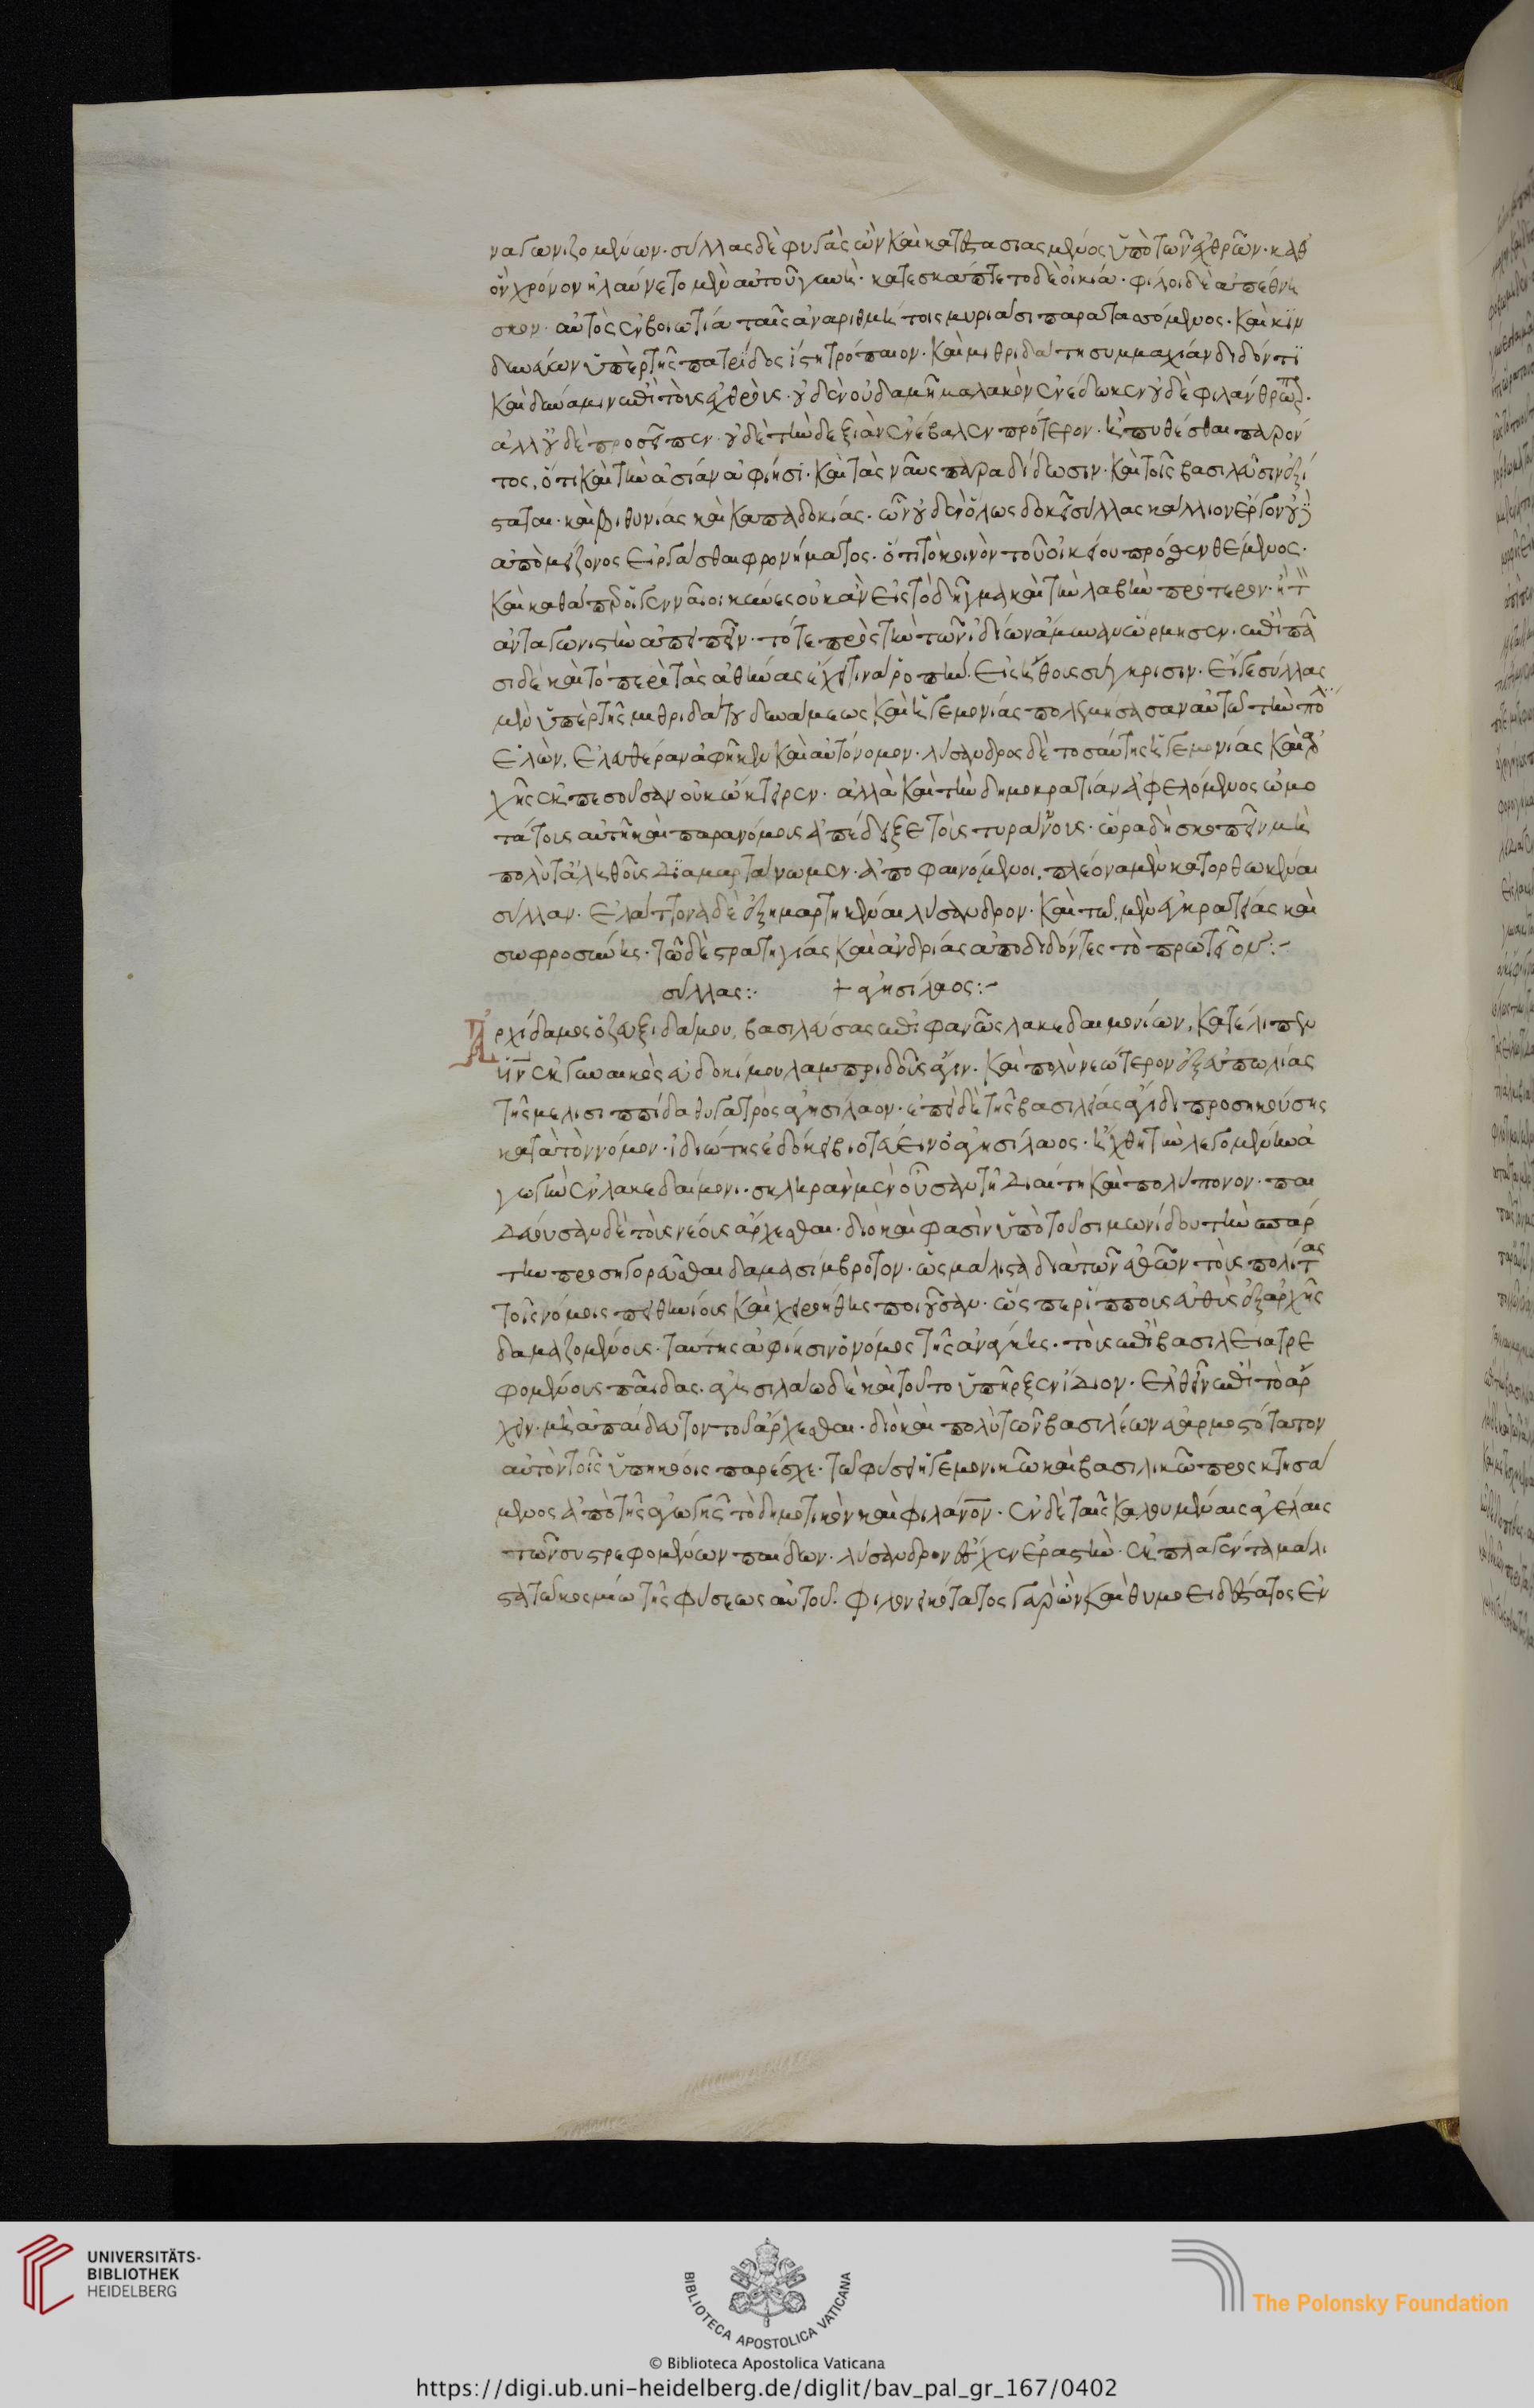 ναγωνιζομένων· σύλλας δὲ φυγὰς ὢν καὶ καταστασιασμένος ὑπὸ τῶν ἐχθρῶν· καθ
ὃν χρόνον ἠλαύνετο μὲν αὐτοῦ γυνὴ· κατεσκάπτετο δὲ οἰκία· φίλοι δὲ ἀπέθνη
σκον· αὐτὸς ἐν βοιωτία ταῖς ἀναριθμήτοις μυριάσι παραταττόμενος· καὶ κιν
δυνεύων ὑπὲρ τῆς πατρίδος ἵστη τρόπαιον· καὶ μιθριδάτη συμμαχίαν διδόντι
καὶ δύναμιν ἐπὶ τοὺς ἐχθροὺς· οὐδὲν οὐδαμῆ μαλακὸν ἐνέδωκεν οὐδὲ φιλάνθρωπον·
ἀλλ οὐδὲ προσεῖπεν· οὐδὲ τὴν δεξιὰν ἐνέβαλεν πρότερον· ἢ πυθέσθαι παρόν
τος, ὅτι καὶ τὴν ἀσίαν ἀφίησι· καὶ τὰς ναῦς παραδίδωσιν· καὶ τοῖς βασιλεῦσιν ἐξί
σταται· καὶ βιθυνίας καὶ καπαδοκίας· ὧν οὐδὲν ὅλως δοκεῖ σύλλας κάλλιον ἔργον οὐδ
ἀπὸ μείζονος εἰργάσθαι φρονήματος· ὅτι τὸ κοινὸν τοῦ οἰκείου πρόσθεν θέμενος·
καὶ καθάπερ οἱ γενναῖοι κύνες οὐκ ἀνεὶς τὸ δῆγμα καὶ τὴν λαβὴν πρότερον· ἢ τὸν
ἀνταγωνιστὴν ἀπειπεῖν· τότε πρὸς τὴν τῶν ἰδίων ἄμυναν ὥρμησεν· ἐπὶ πᾶ
σι δὲ καὶ τὸ περὶ τὰς ἀθήνας ἔχει τινα ῥοπὴν· εἰς ἤθους σύγκρισιν· εἴγε σύλλας
μὲν ὑπὲρ τῆς μιθριδάτου δυνάμεως καὶ ἡγεμονίας πολεμήσασαν αὐτῶ τὴν πόλιν
ἑλὼν, ἐλευθέραν ἀφῆκεν καὶ αὐτόνομον· λύσανδρος δὲ τοσαύτης ἡγεμονίας καὶ ἀρ
χῆς ἐκπεσοῦσαν οὐκ ὤκτειρεν· ἀλλὰ καὶ τὴν δημοκρατίαν ἀφελόμενος ὠμο
τάτοις αὐτῆ καὶ παρανόμοις ἀπέδειξε τοῖς τυράννοις· ὥρα δὴ σκοπεῖν μὴ
πολὺ τἀληθοῦς διαμαρτάνωμεν· ἀποφαινόμενοι, πλέονα μὲν κατορθωκέναι
σύλλαν· ἐλάττονα δὲ ἐξημαρτηκέναι λύσανδρον· καὶ τῶ, μὲν ἐγκρατείας καὶ
σωφροσύνης· τῶ δὲ στρατηγίας καὶ ἀνδρίας ἀποδιδόντες τὸ πρωτεῖον:–
σύλλας:· + ἀγησίλαος:–
Ἀρχίδαμος ὁ ζευξιδάμου, βασιλεύσας ἐπιφανῶς λακεδαιμονίων, κατέλιπεν
υἱὸν ἐκ γυναικὸς εὐδοκίμου λαμπριδοῦς ἄγιν· καὶ πολὺ νεώτερον ἐξ εὐπωλίας
τῆς μελισιππίδα θυγατρὸς ἀγησίλαον· ἐπεὶ δὲ τῆς βασιλείας ἄγιδι προσηκούσης
κατὰ τὸν νόμον· ἰδιώτης ἐδόκει βιοτεύειν ὁ ἀγησίλαος· ἤχθη τὴν λεγομένην ἀ
γωγὴν ἐν λακεδαίμονι· σκληρὰν μὲν οὖσαν τῆ διαίτη καὶ πολύπονον· παι
δεύουσαν δὲ τοὺς νέους ἄρχεσθαι· διὸ καὶ φασὶν ὑπὸ τοῦ σιμωνίδου τὴν σπάρ
την προσηγορεῦσθαι δαμασίμβροτον· ὡς μάλιστα διὰ τῶν ἐθῶν τοὺς πολίτας
τοῖς νόμοις πειθηνίους καὶ χειροήθεις ποιοῦσαν· ὥσπερ ἵππους εὐθὺς ἐξ ἀρχῆς
δαμαζομένους· ταύτης ἀφίησιν ὁ νόμος τῆς ἀνάγκης· τοὺς ἐπὶ βασιλεία τρε
φομένους παῖδας· ἀγησιλάω δὲ καὶ τοῦτο ὑπῆρξεν ἴδιον· ἐλθεῖν ἐπὶ τὸ ἄρ
χειν· μὴ ἀπαίδευτον τοῦ ἄρχεσθαι· διὸ καὶ πολὺ τῶν βασιλέων εὐαρμοστότατον
αὐτὸν τοῖς ὑπηκόοις παρέσχε· τῶ φύσει ἡγεμονικῶ καὶ βασιλικῶ προσκτησά
μενος ἀπὸ τῆς ἀγωγῆς τὸ δημοτικὸν καὶ φιλάνον· ἐν δὲ ταῖς καλουμέναις ἀγέλαις
τῶν συστρεφομένων παίδων· λύσανδρον ἔσχεν ἐραστὴν· ἐκπλαγέντα μάλι
στα τῶ κοσμίω τῆς φύσεως αὐτοῦ· φιλονεικότατος γὰρ ὢν καὶ θυμοειδέστατος ἐν
UNIVERSITÄTS-
BIBLIOTHEK
HEIDELBERG
BIBLIOTECA APOSTOLICA VATICANA
The Polonsky Foundation
© Biblioteca Apostolica Vaticana
https://digi.ub.uni-heidelberg.de/diglit/bav_pal_gr_167/0402